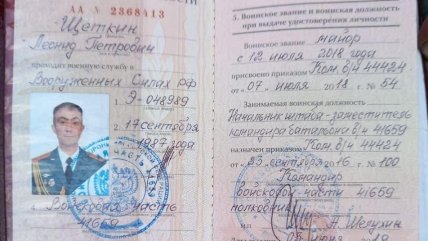 АА № 2368413
Щеткин
Леонид Петрович
проходит военную службу в
Вооруженных Силах РФ
Э-048989
17 сентября
1987 года
Войсковая часть
41659
5. Воинское звание и воинская должность
при выдаче удостоверения личности
Воинское звание майор
с 12 июля 2018 года
присвоено приказом Ком. в/ч 44424
от 07 июля 2018 г. № 54
Занимаемая воинская должность
Начальник штаба-заместитель
командира батальона в/ч 41659
назначен приказом Ком. в/ч 44424
от 23 сентября 2016 № 100
Командир
войсковой части 41659
полковник
М.П.